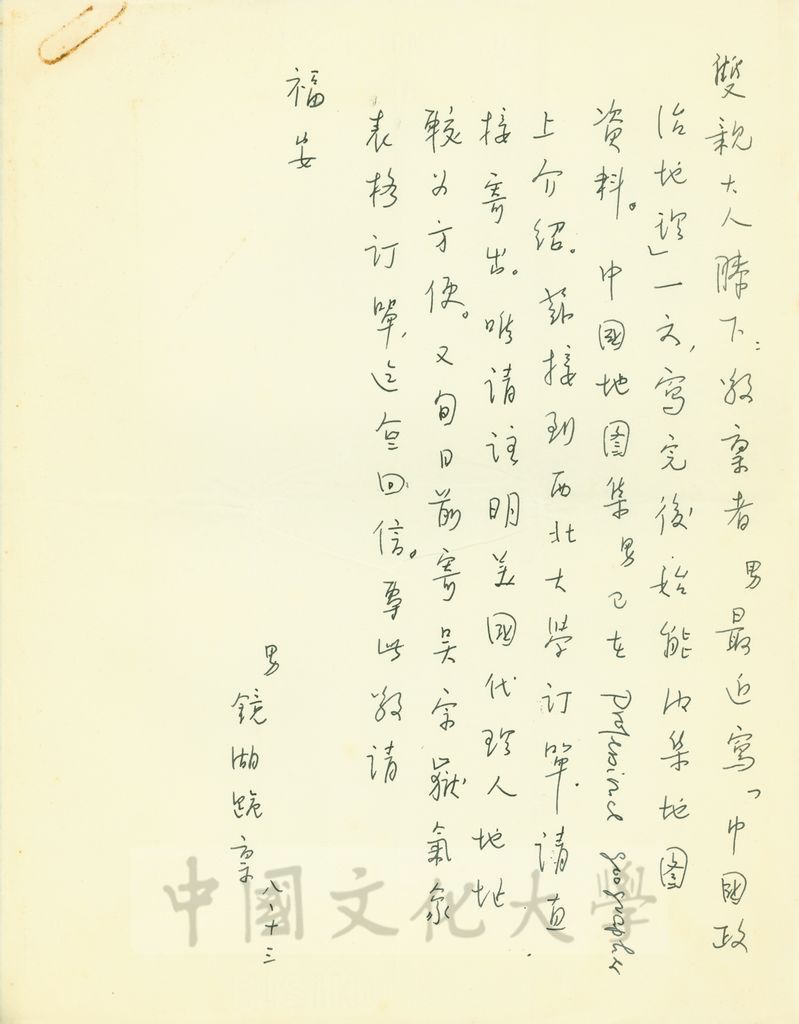 雙親大人膝下：敬稟者 男最近寫「中國政
治地理」一文，寫完後始能收集地圖
資料。中國地圖集男已在 Professional Geographer
上介紹。茲接到西北大學訂單．請直
接寄出。唯請註明美國代理人地址
較為方便。又旬日前寄吳宗嶽氣象
表格訂單，迄無回信。專此敬請
福安
男
鏡湖跪稟
八、十三
中國文化大學